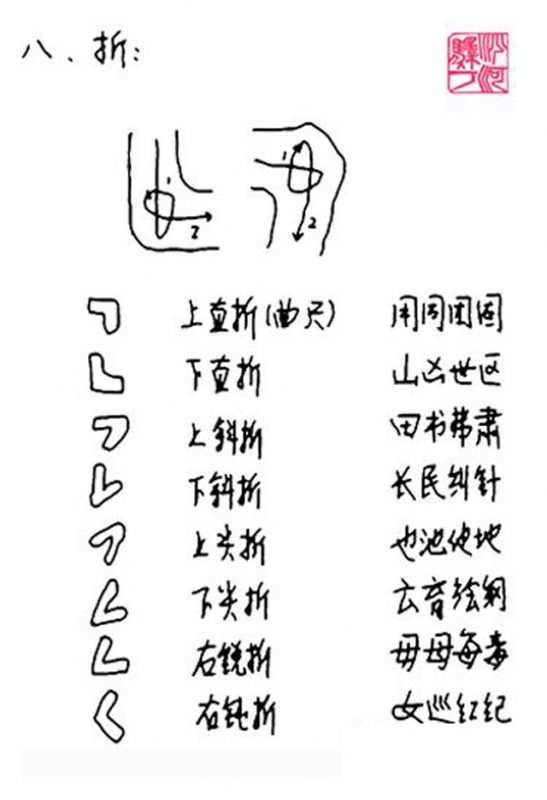 八、折：
沙河
1
2
1
2
上直折(曲尺) 用同团固
下直折 山凶世区
上斜折 田书弗肃
下斜折 长民纠针
上尖折 也池他地
下尖折 云育绘纲
右锐折 毋母每毒
右钝折 女巡红纪